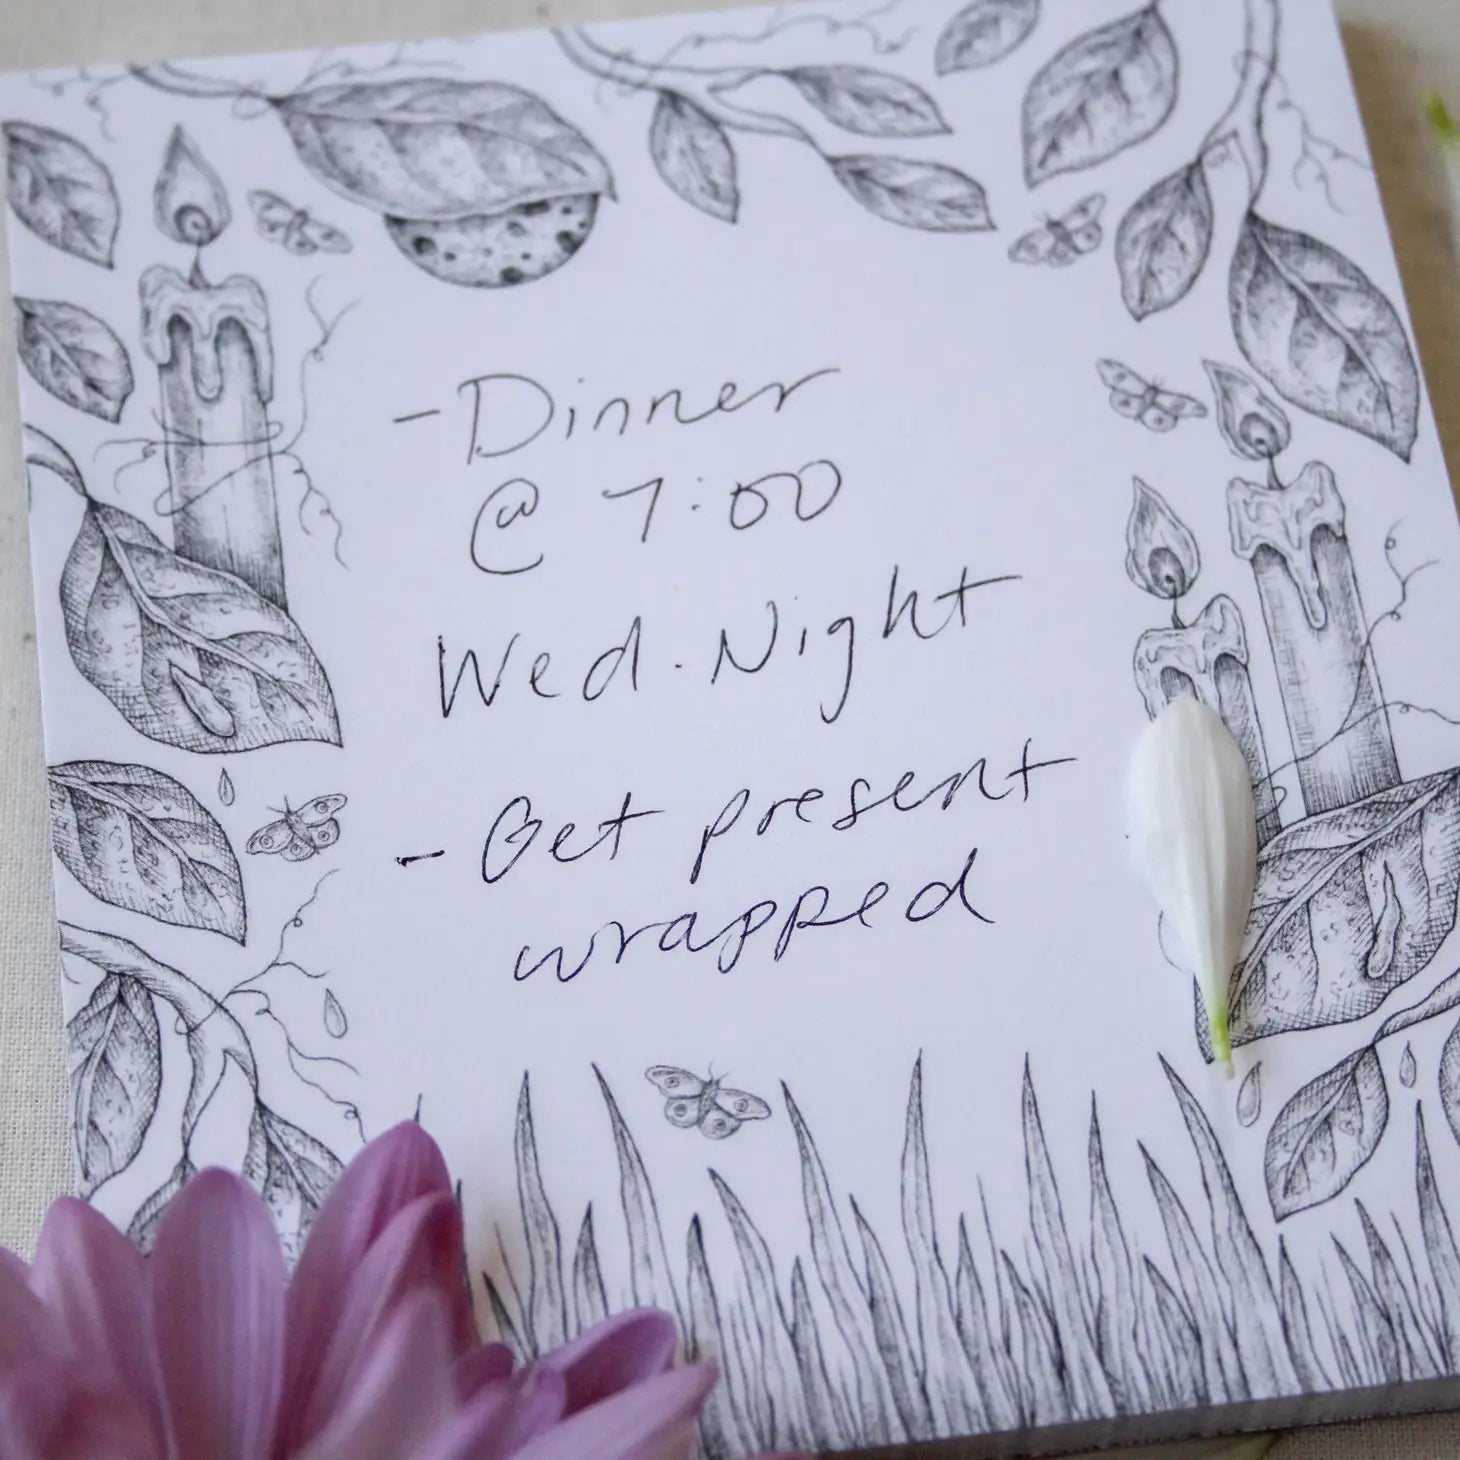 - Dinner
@ 7:00
Wed. Night
- Get present
wrapped